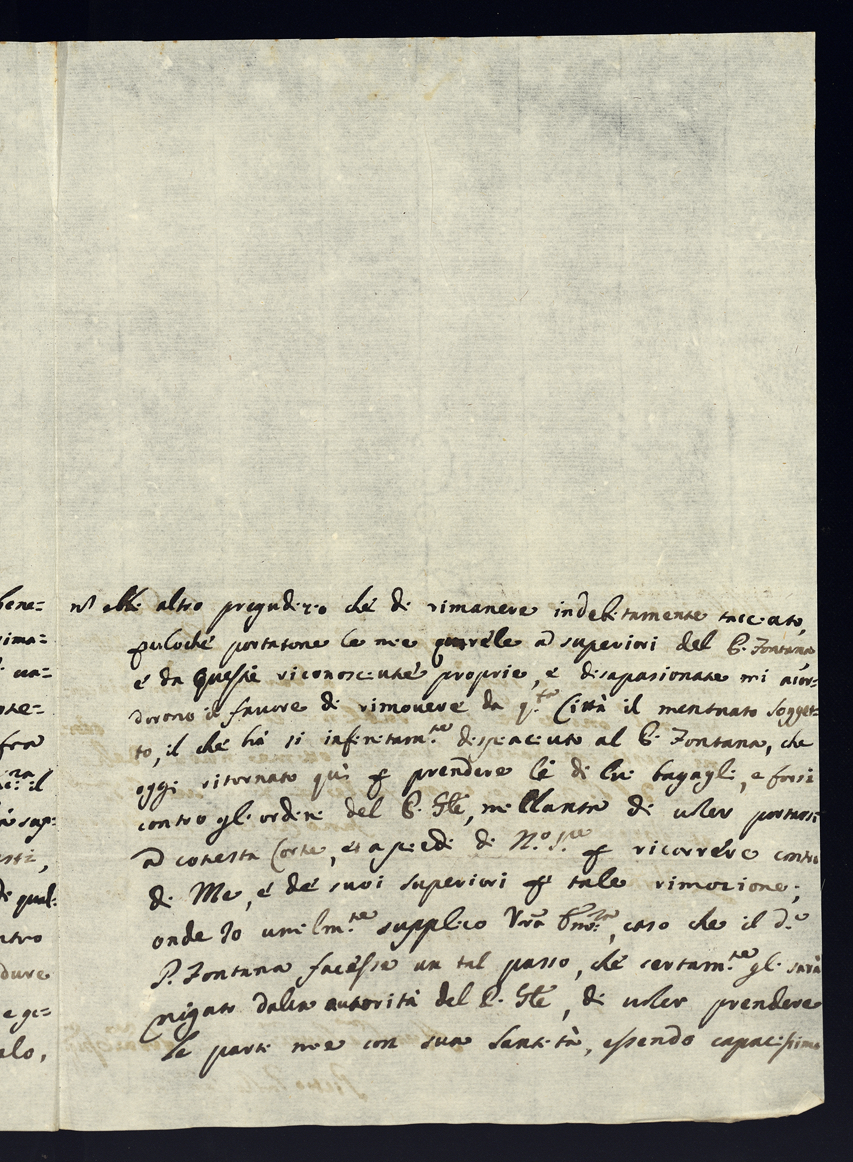 bene=
n' ebbe altro pregiudizio ché di rimanere indebitamente tacciato,
sima=
perloché portatone le mie queréle a superiori del P. Fontana
ua=
é da queste riconosciuté proprie, e disapasionate mi accor=
dorono il favore di rimovere da q.ta Città il mentuato sogget=
to, il ché hà sì infinitam.te dispiaciuto al P. Fontana, che
il
oggi ritornato quì p prendere lé di lui bagagli, e forsi
contro gl'ordini del P. Gñle, millanta di uoler portarsi
a cotesta Corte, et a piedi di N.ro S.re p ricorrére contro
di Me, é dé suoi superiori p tale rimozione;
di qual=
onde Io umilm.te supplico Vrã Emza, caso che il d.o
P. Fontana facésse un tal passo, ché certam.te gli sarà
dure
nigato dalla autorità del P. Gñle, di uoler prendere
e gi=
le parti mie con sua Santità, essendo capacissimo
alo,